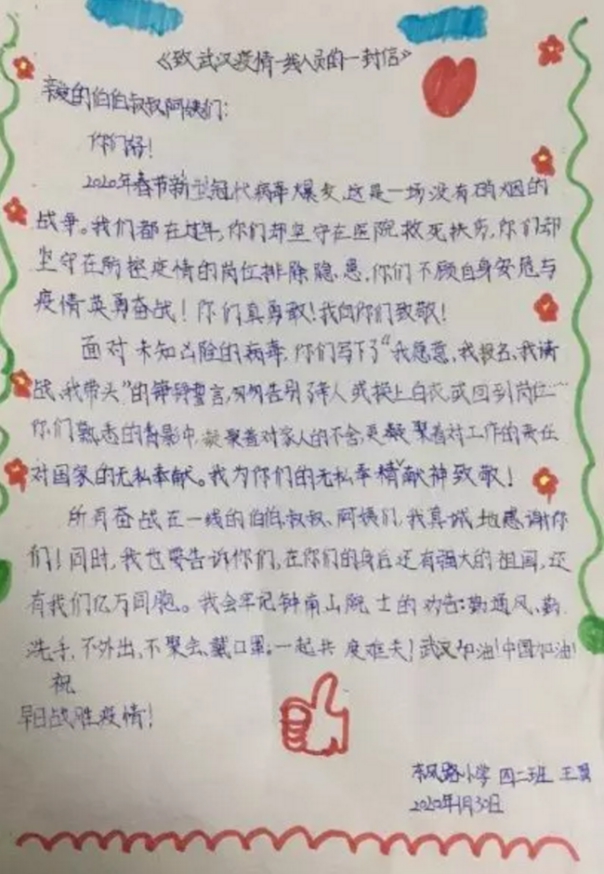 《致武汉疫情一线人员的一封信》
亲爱的伯伯叔叔阿姨们：
你们好！
2020年春节新型冠状病毒爆发，这是一场没有硝烟的
战争。我们都在过年，你们却坚守在医院救死扶伤，你们却
坚守在防控疫情的岗位排除隐患，你们不顾自身安危与
疫情英勇奋战！你们真勇敢！我向你们致敬！
面对未知凶险的病毒，你们写下了“我愿意，我报名，我请
战，我带头”的铮铮誓言，匆匆告别了家人或披上白衣，或回到岗位…
你们熟悉的背影中，凝聚着对家人的不舍，更凝聚着对工作的责任
对国家的无私奉献。我为你们的无私奉献精神致敬！
所有奋战在一线的伯伯叔叔、阿姨们，我真诚地感谢你
们！同时，我也要告诉你们，在你们的身后还有强大的祖国，还
有我们亿万同胞。我会牢记钟南山院士的劝告：勤通风、勤
洗手，不外出，不聚会，戴口罩。一起共度难关！武汉加油！中国加油！
祝
早日战胜疫情！
东风路小学 四二班 王
2020年1月30日